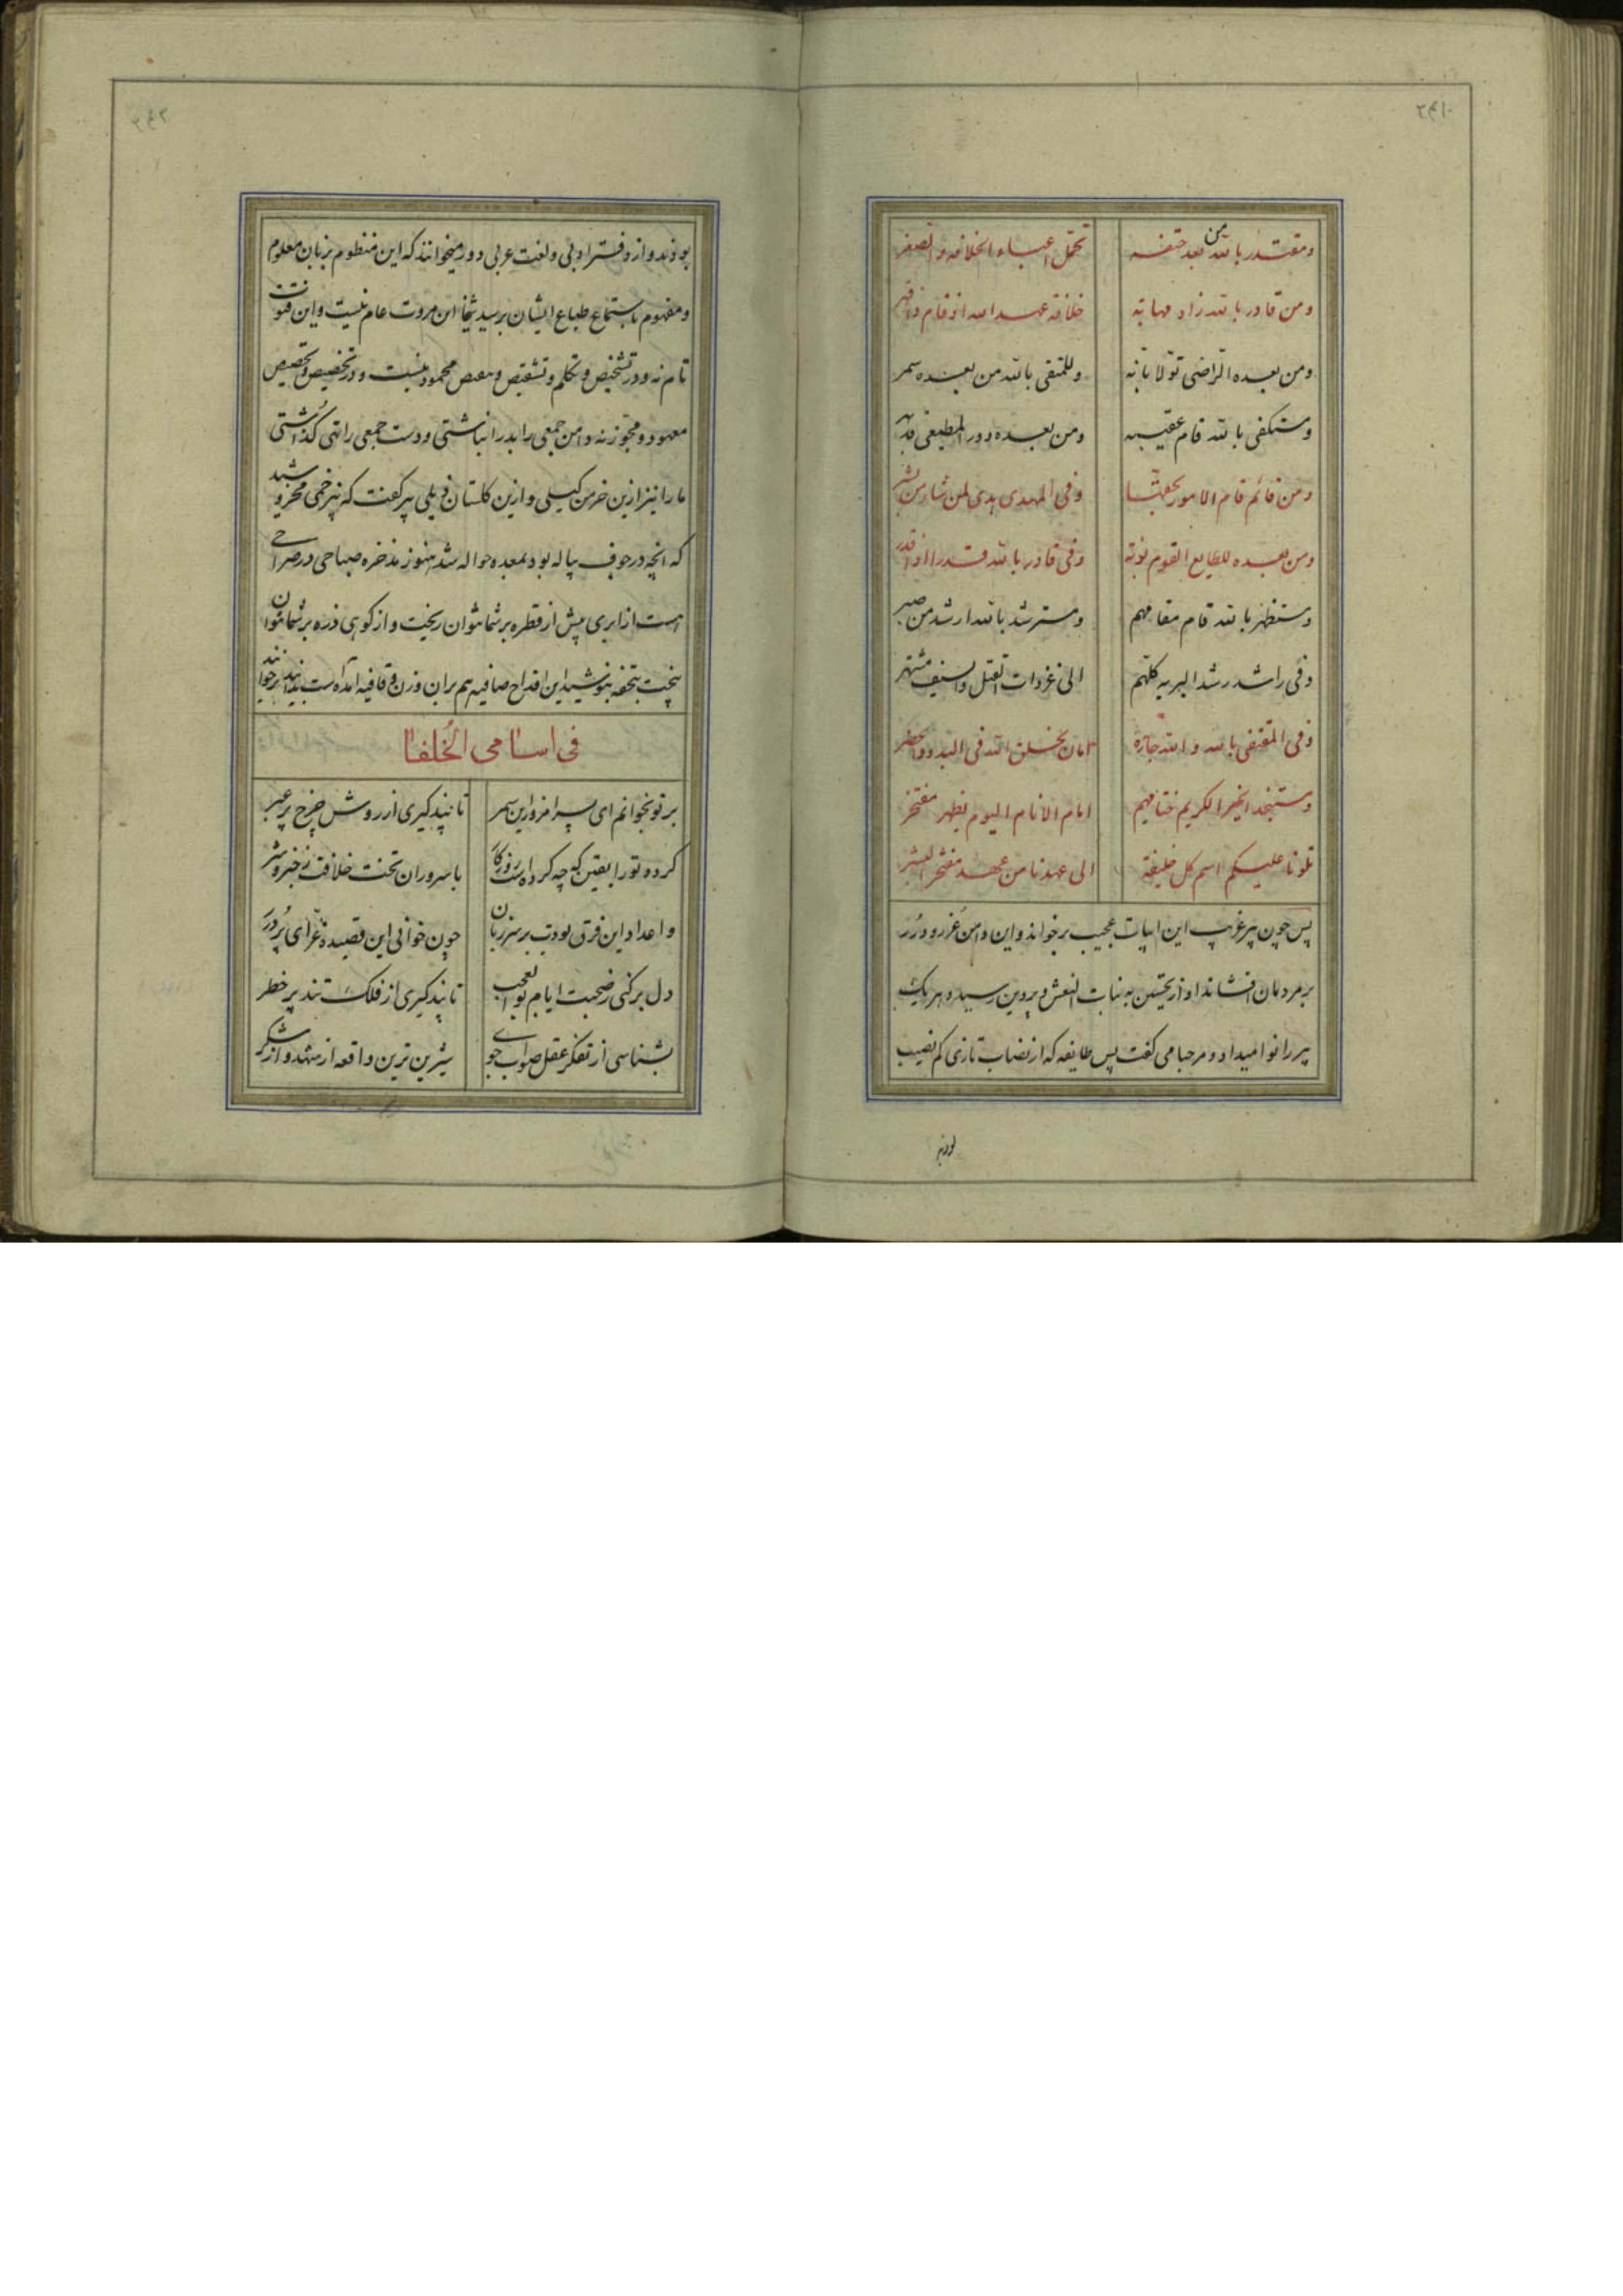 ومقتدر بالله من بعد حتفه تحمل اعباء الخلافه والصغر
ومن قادر بالله زاد مهابة خلافة عبدالله اذ قام
ومن بعده الراضی تولا بانه وللمتقی بالله من بعده سمر
ومستکفی بالله قام عقیبه ومن بعده دور المطیعی
ومن قائم قام الامور بحقها وفی المهدی هدی لمن شاء من بشر
ومن بعده للطایع القوم نوبة وفی قادر بالله قدرا اذ اقتدر
ومستظهر بالله قام مقامهم ومسترشد بالله ارشد من صبر
وفی راشد رشد البریه کلهم الی غزوات القتل والسیف مشتهر
وفی المقتفی بالله والله جاره امان بخلق الله فی البدو والحضر
ومستنجد الخیر الکریم ختامهم امام الانام الیوم یظهر مفتخر
تلونا علیکم اسم کل خلیفة الی عهدنا من عهد مفتخر البشر
پس چون پیر غریب این ابیات عجیب برخواند و این دامن غرر و درر
بر مردمان افشاند آواز تحسین به بنات النعش و پروین رسید و هر یک
پیر را نوا میداد و مرحبا می کفت پس طایفه که از نصاب تازی کم نصیب
بودند
۲۴۱
بودند و از دفتر ادبی و لغت عربی دور میخواندند که این منظوم بزبان معلوم
و مفهوم باستماع طباع ایشان برسد شیخا این مروت عام نیست و این فتوت
تام نه و در تشخیص و تکلم و تنقیص محمود نیست و در تخصیص و تحصیص
معهود و مجوز نه دامن جمعی را بدر انباشتی و دست جمعی را تهی کذاشتی
ما را نیز ازین خرمن کیلی و ازین کلستان ذیلی پیر کفت که نیز خمی مخروشید
که انچه در جوف پیاله بود بمعده حواله شد هنوز مدخره صباحی در صراحی
است از ابری پیش از قطره بر شما نتوان ریخت و از کوهی ذره بر شما نتوان
بیخت بتحفه بنوشید این اقداح صافیه هم بران وزن و قافیه آمده است بدانید و برخوانید
فی اسامی الخلفا
بر تو بخوانم ای پسر امروز این سمر تا پند کیری از روش چرخ پر عبر
کردد تو را یقین که چه کرده است روزکار با سروران تخت خلافت ز خیر و شر
واعداد این فرق بودت بر سر زبان چون خوانی این قصیده غرای پر درر
دل برکنی ز صحبت ایام بوالعجب تا پند کیری از فلک تند پر خطر
بشناسی از تفکر عقل صواب جوی شیرین ترین واقعه از شهد و از شکر